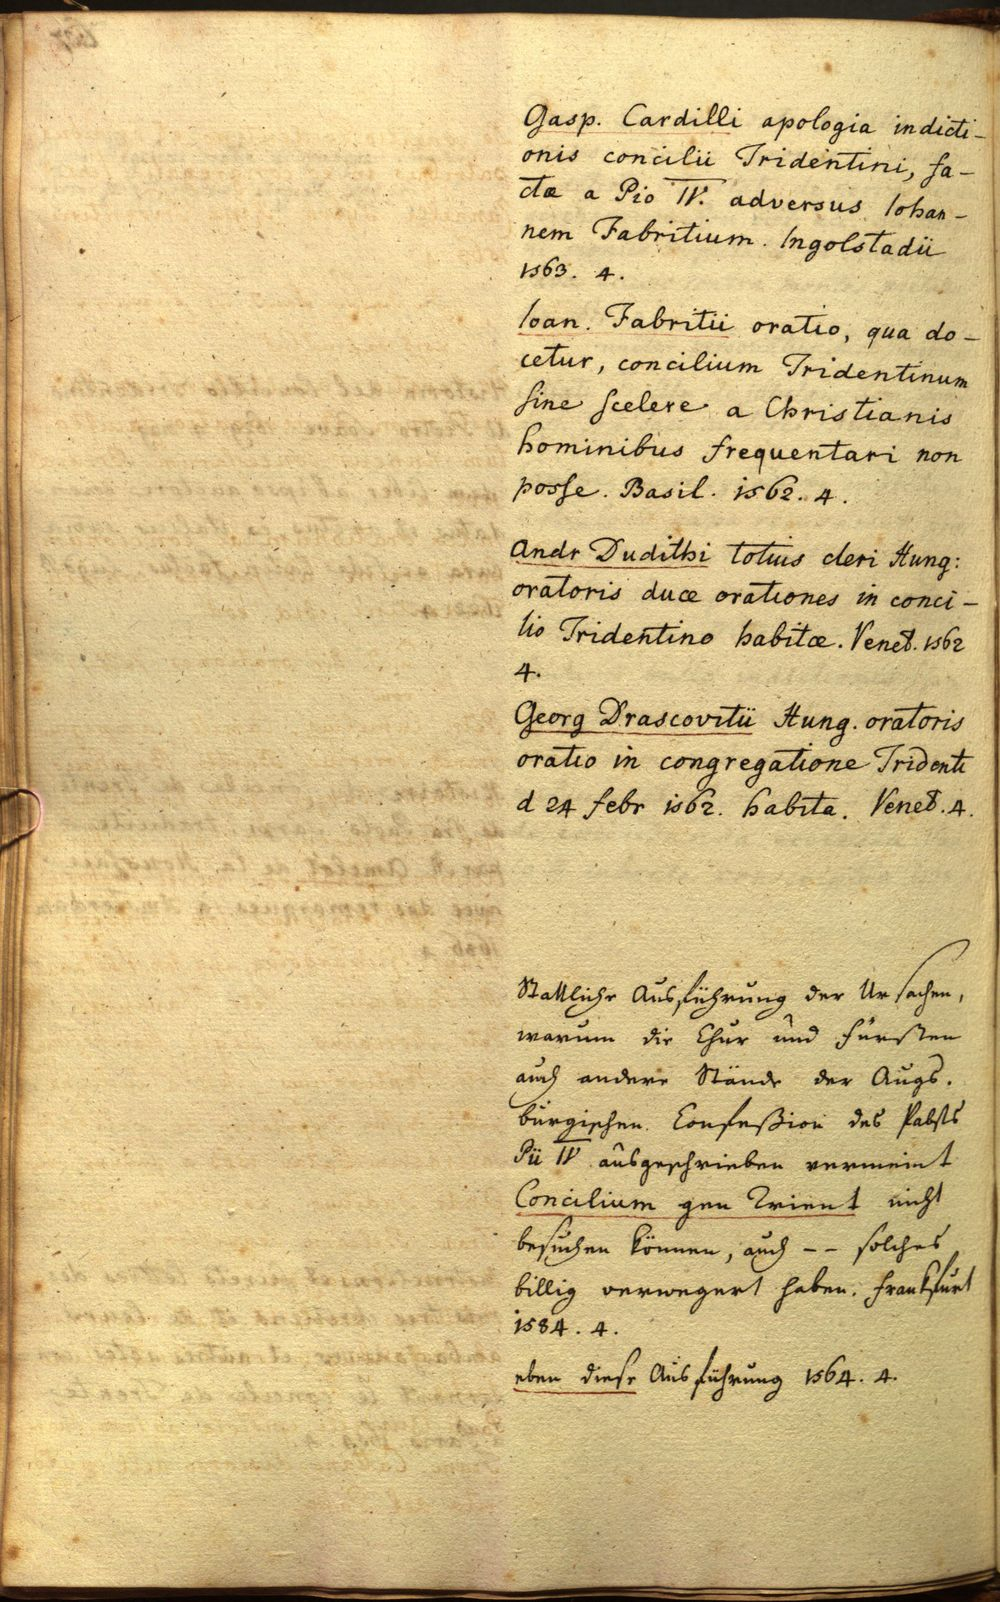 Gasp. Cardilli apologia indicti-
onis concilii Tridentini, fa-
ctæ a Pio IV. adversus Iohan-
nem Fabritium. Ingolstadii
1563. 4.
Ioan. Fabritii oratio, qua do-
cetur, concilium Tridentinum
sine scelere a Christianis
hominibus frequentari non
posse. Basil. 1562. 4.
Andr Dudithi totius cleri Hung:
oratoris duæ orationes in conci-
lio Tridentino habitæ. Venet. 1562
4.
Georg Drascovitii Hung. oratoris
oratio in congregatione Tridenti
d 24 febr 1562. habita. Venet. 4.
Stattliche Ausführung der Ursachen,
warum die Chur und Fürsten
auch andere Stände der Augs.
burgischen Confeßion des Pabsts
Pii IV ausgeschrieben vermeint
Concilium gen Trient nicht
besuchen können, auch -- solches
billig verwegert haben. Franckfurt
1584. 4.
eben diese Ausführung 1564. 4.